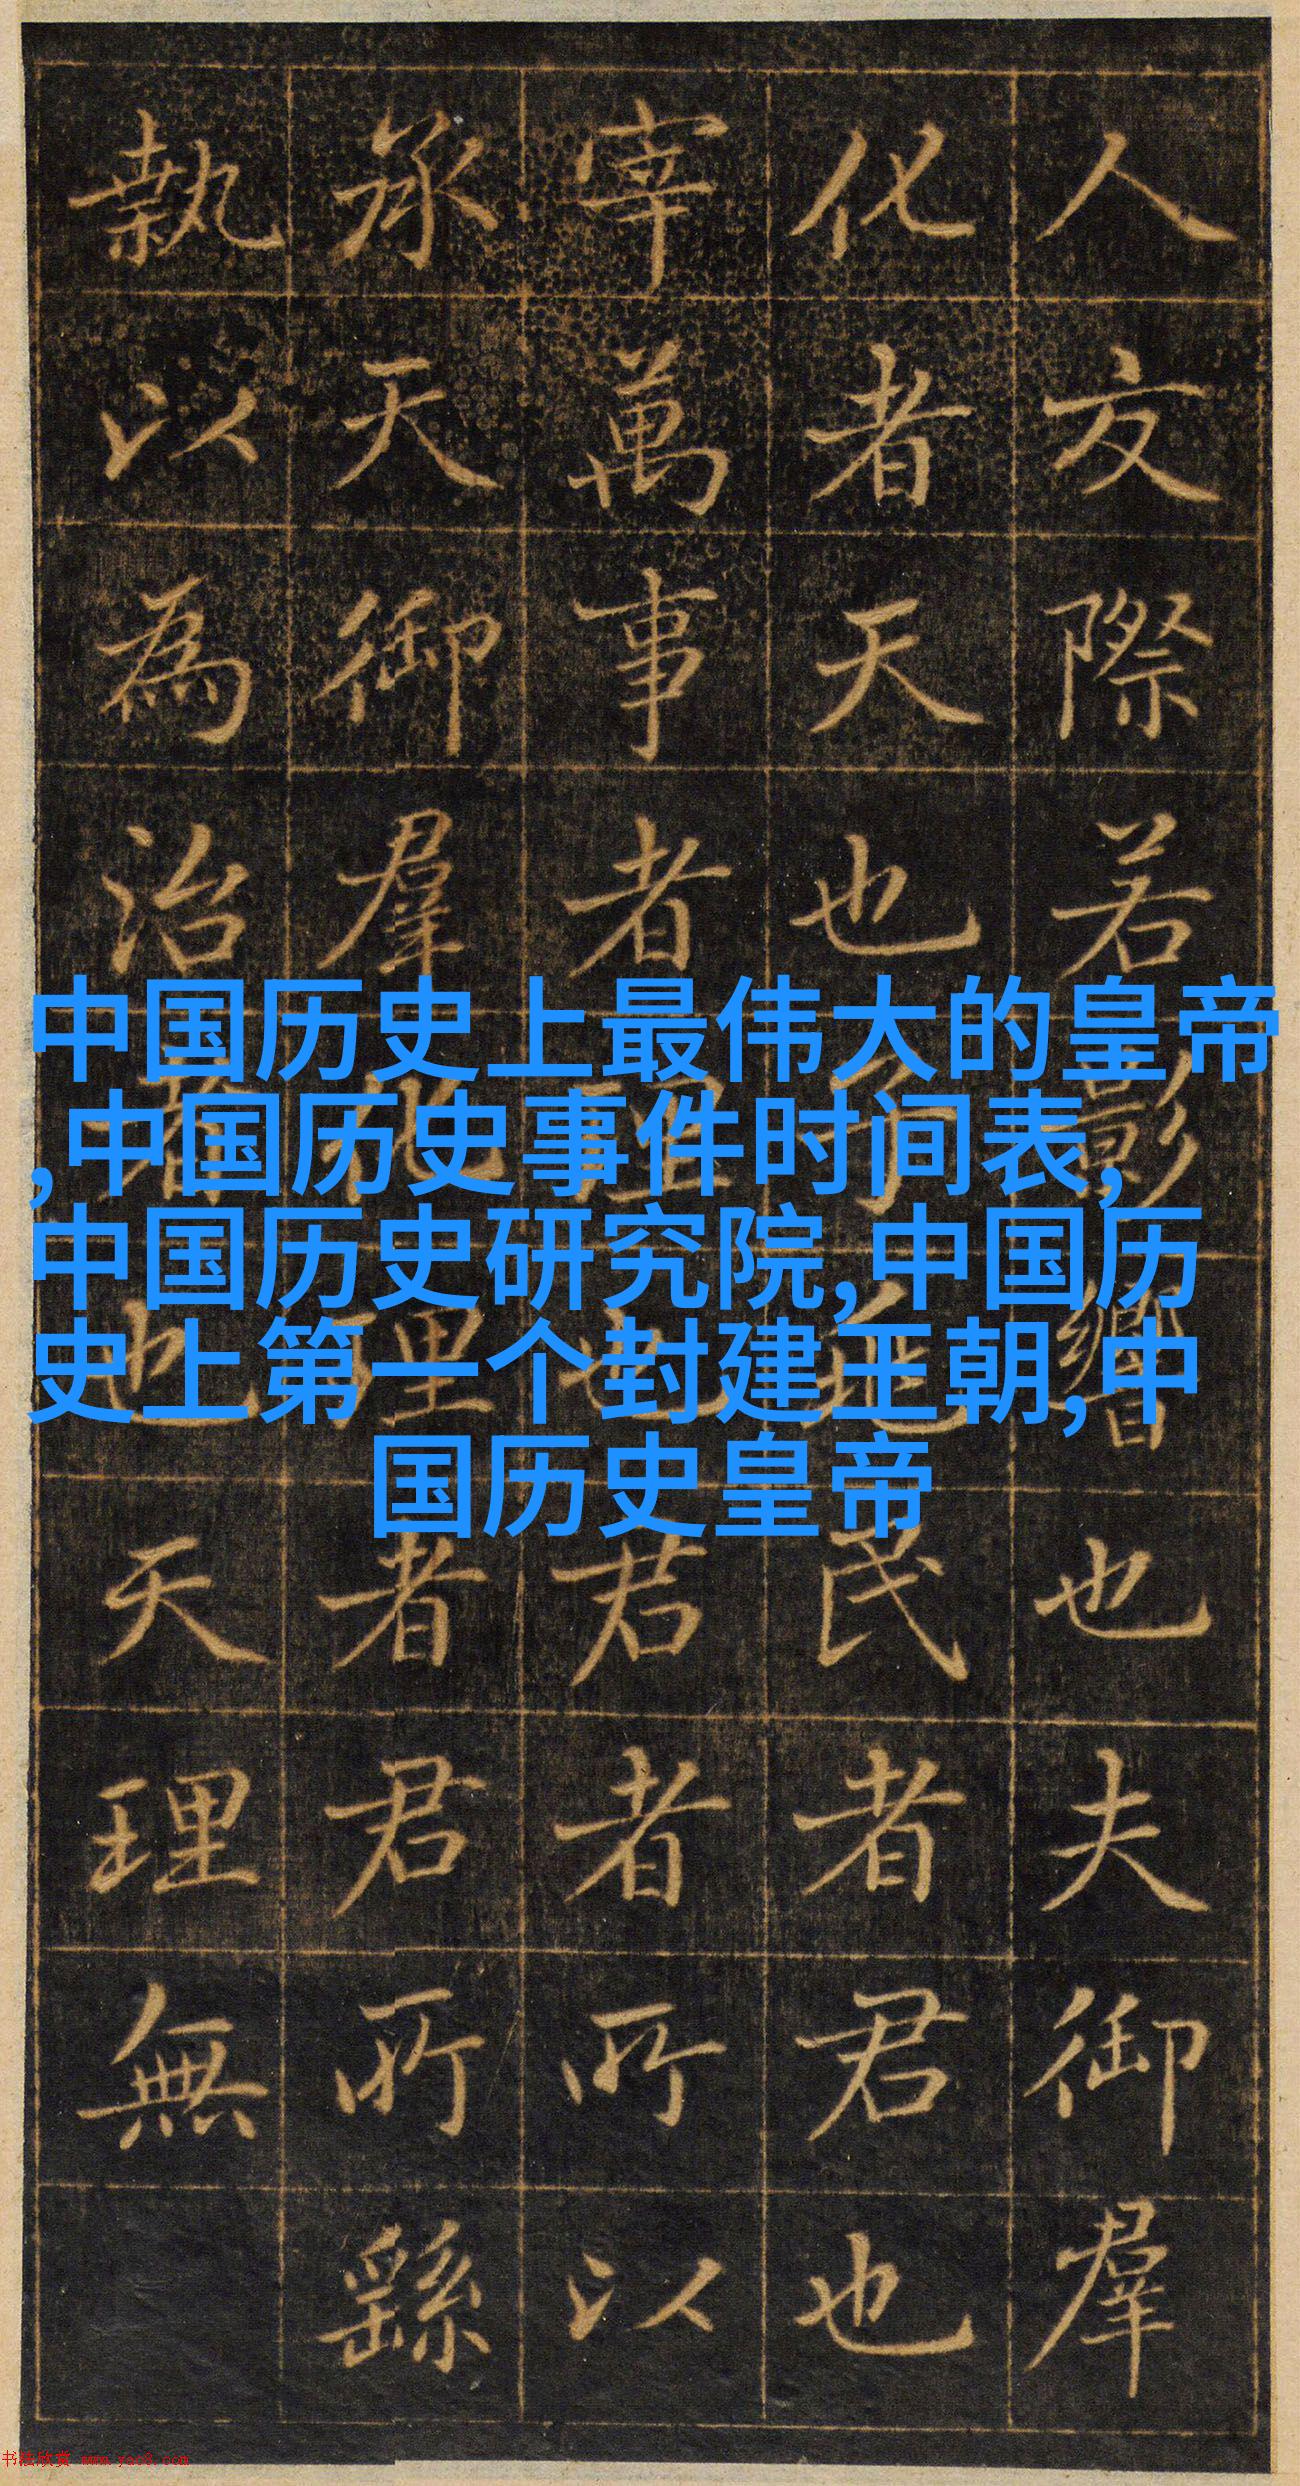 人交際若影響也夫御羣
化者天也子兆民者君也
宰萬事者理也君者所以
承天御羣化理者君所繇
執以為治者也天理無
中国历史上最伟大的皇帝
,中国历史事件时间表,
中国历史研究院,中国历
史上第一个封建王朝,中
国历史皇帝
书法欣赏 www.yac8.com